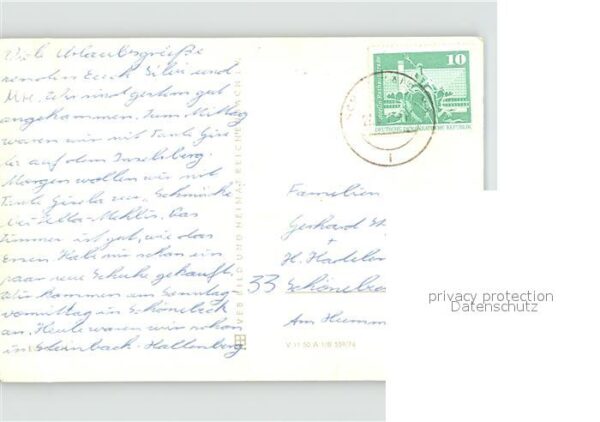 Viele Urlaubsgrüße
senden Euch Silvi und
Wir sind gestern gut
angekommen. Zum Mittag
waren wir mit Tante Gise
la auf dem Inselsberg.
Morgen wollen wir mit
Tante Gisela zur Schmücke
bei Zella-Mehlis. Das
Zimmer ist gut, wie das
Essen. Habe mir schon ein
paar neue Schuhe gekauft.
Wir kommen am Sonntag
vormittag in Schönebeck
an. Heute waren wir schon
in Steinbach-Hallenberg
VEB BILD UND HEIMAT REICHENBACH
10
DEUTSCHE DEMOKRATISCHE REPUBLIK
Familien
Gerhard
+
H.
33 Schönebe
Am
V 11 50 A 1/B
privacy protection
Datenschutz